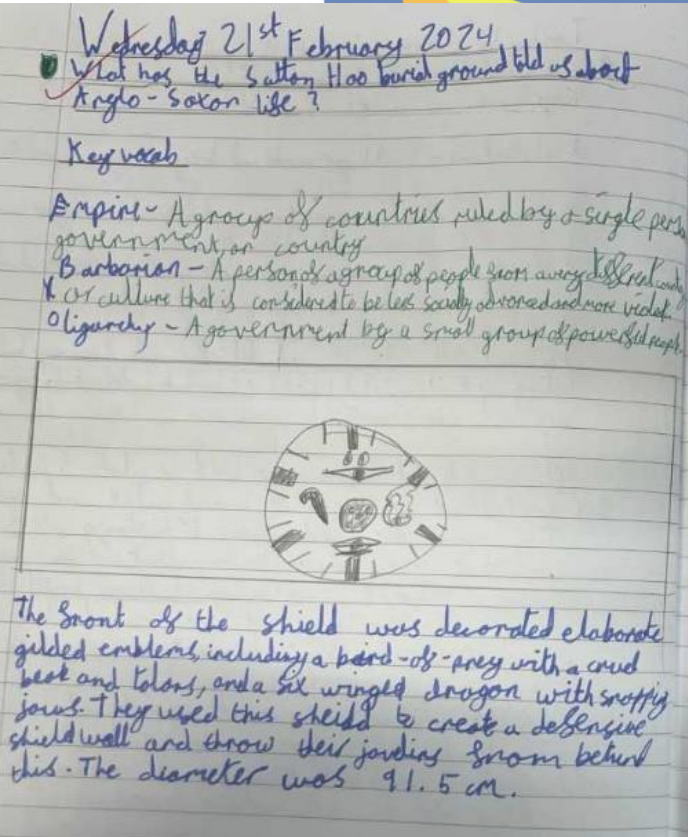 Wednesday 21st February 2024
What has the Sutton Hoo burial ground told us about
Anglo-Saxon life?
Key vocab
Empire - A group of countries ruled by a single person
government, or country
Barbarian - A person of a group of people from a very different
or culture that is considered to be less socially advanced and more violent.
Oligarchy - A government by a small group of powerful people.
The front of the shield was decorated elaborate
gilded emblems, including a bird-of-prey with a
beak and talons, and a six winged dragon with
jaws. They used this sheild to create a defensive
shield wall and throw their from behind
this. The diameter was 91.5 cm.